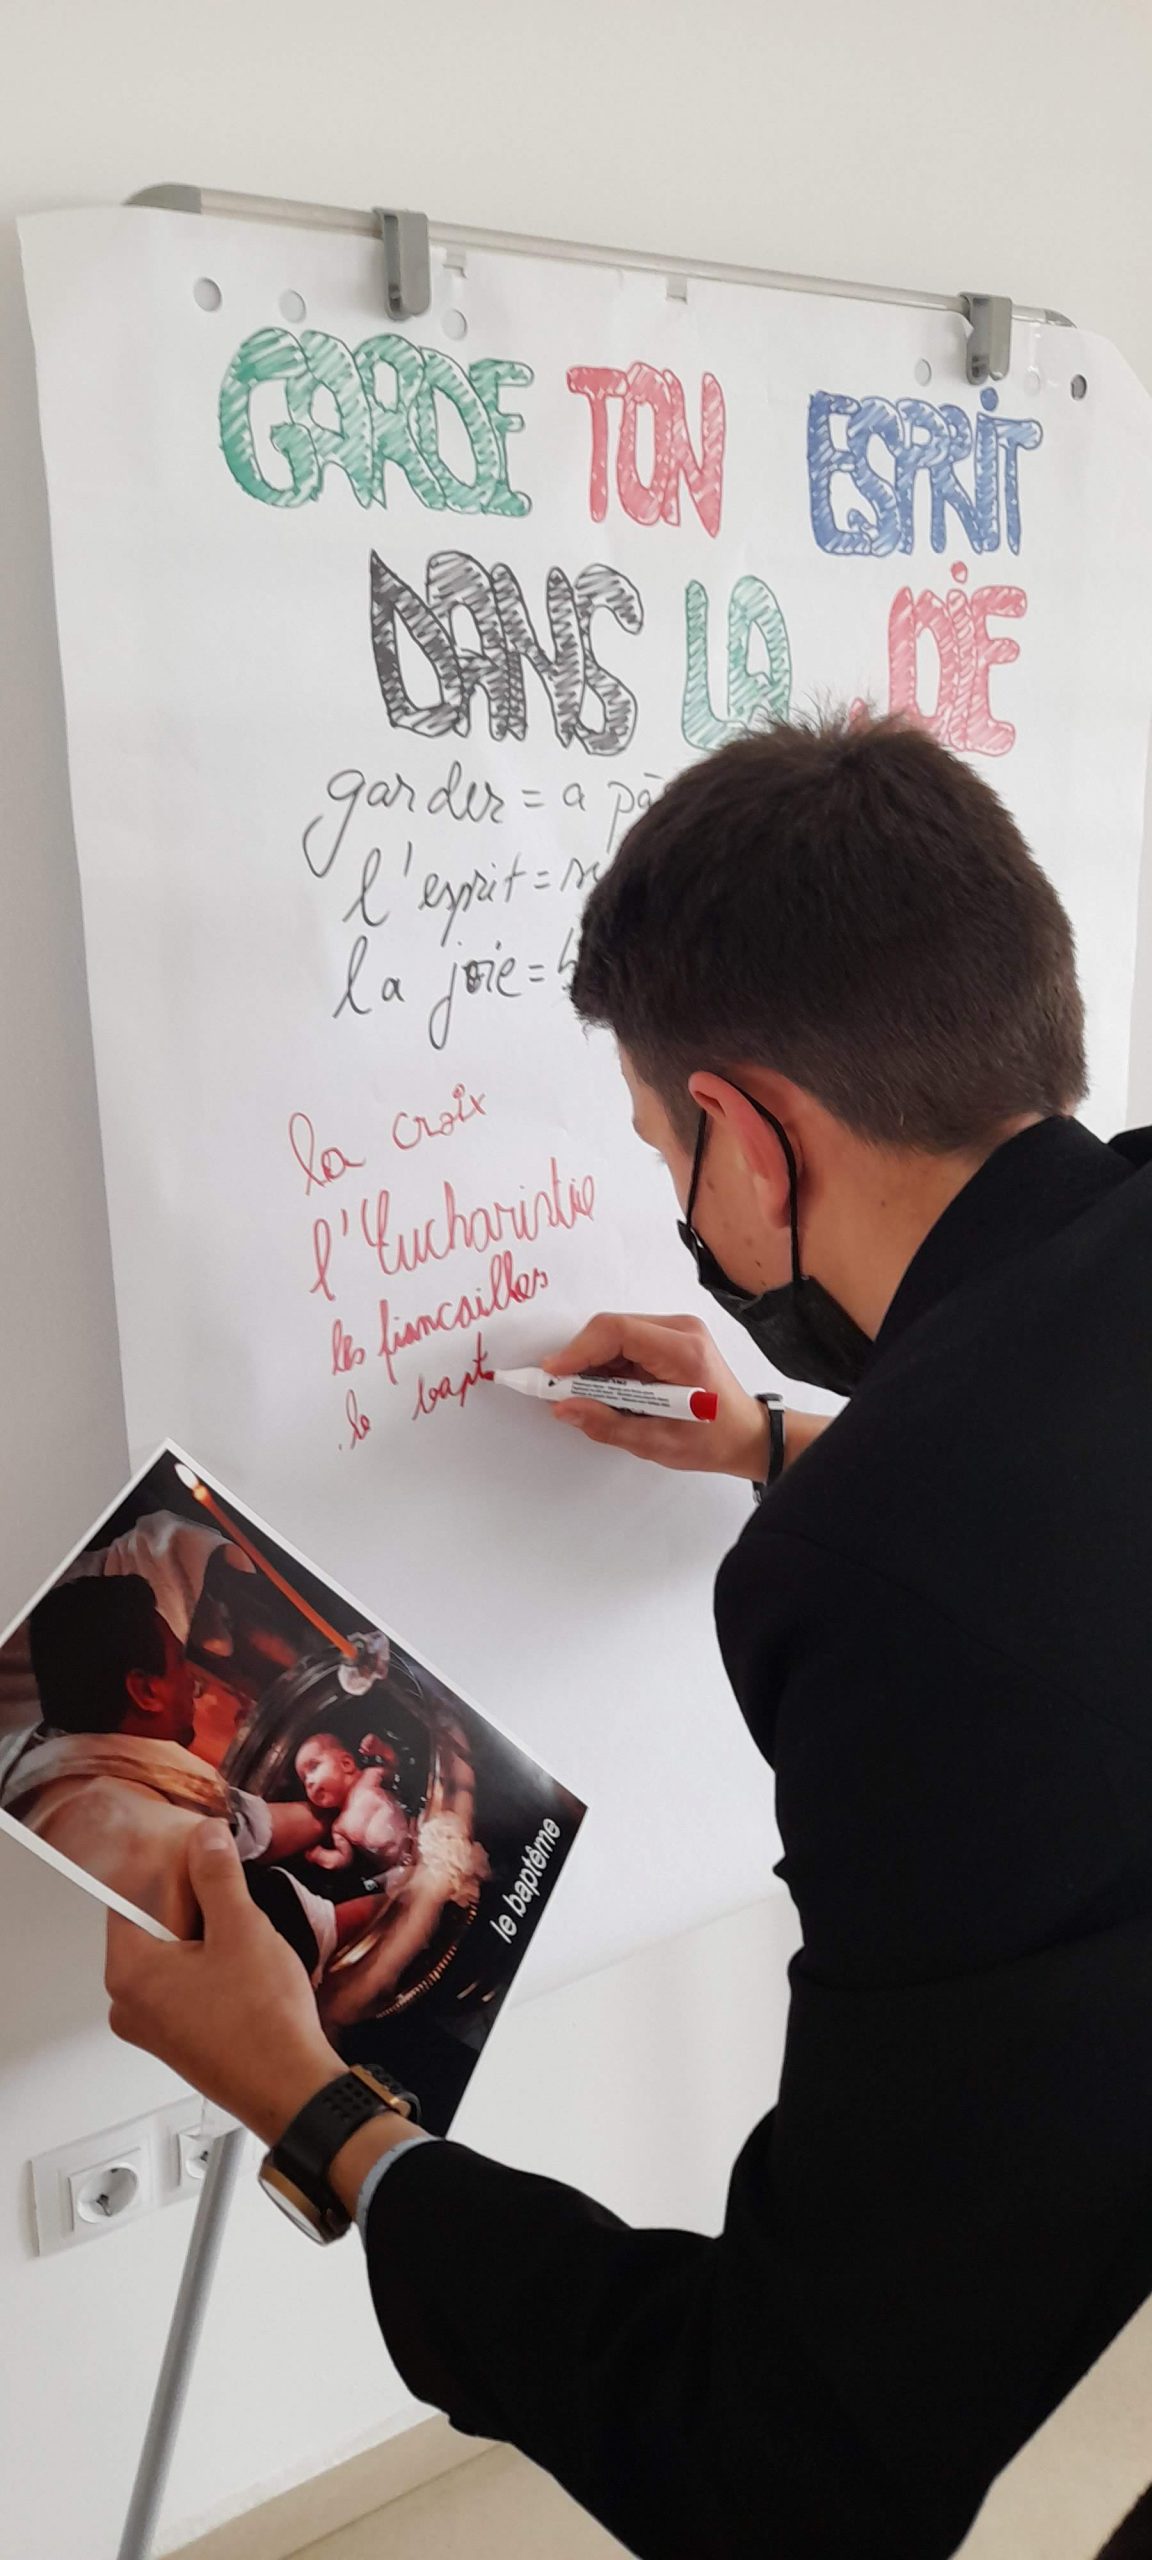 GARDE TON ESPRIT
DANS LA JOIE
garder = a
l'esprit =
la joie =
la croix
l'Eucharistie
les fiancailles
le bapt
le baptême